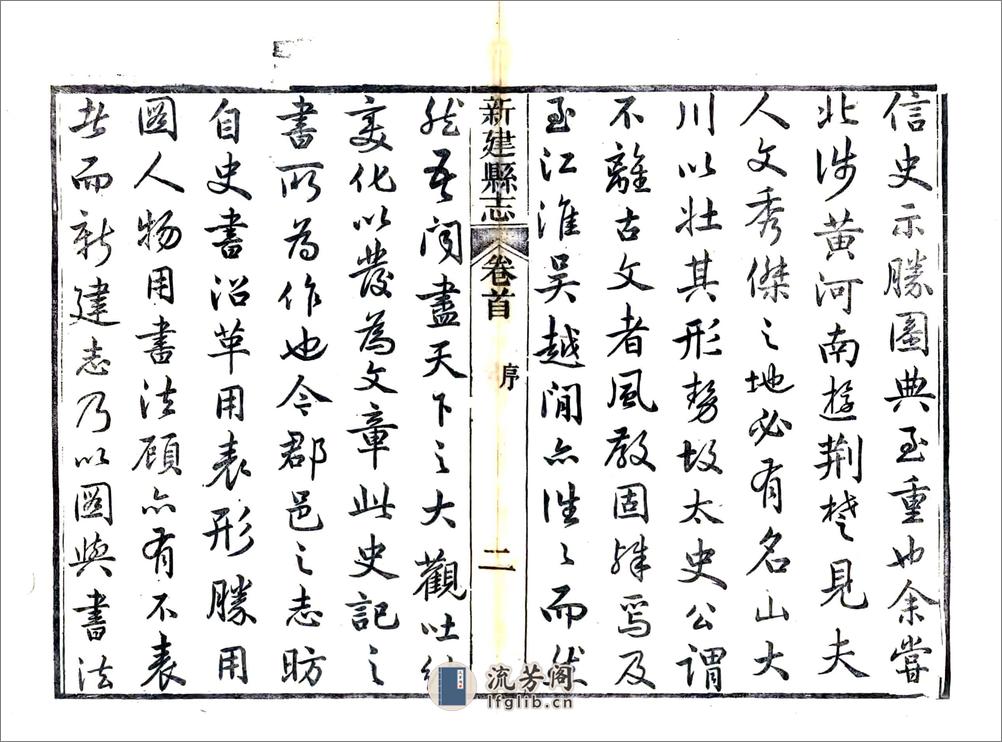 信史示勝圖典至重也余嘗
北涉黄河南遊荆楚見夫
人文秀傑之地必有名山大
川以壮其形势故太史公謂
不離古文者風教固殊焉及
至江淮吴越間亦往〻而然
新建縣志
卷首
序
二
然吾聞盡天下之大觀吐納
变化以發為文章此史記之
書所為作也今郡邑之志昉
自史書沿革用表形勝用
圖人物用書法顾亦有不表
者而新建志乃以圖與書法
流芳阁
lfglib.cn